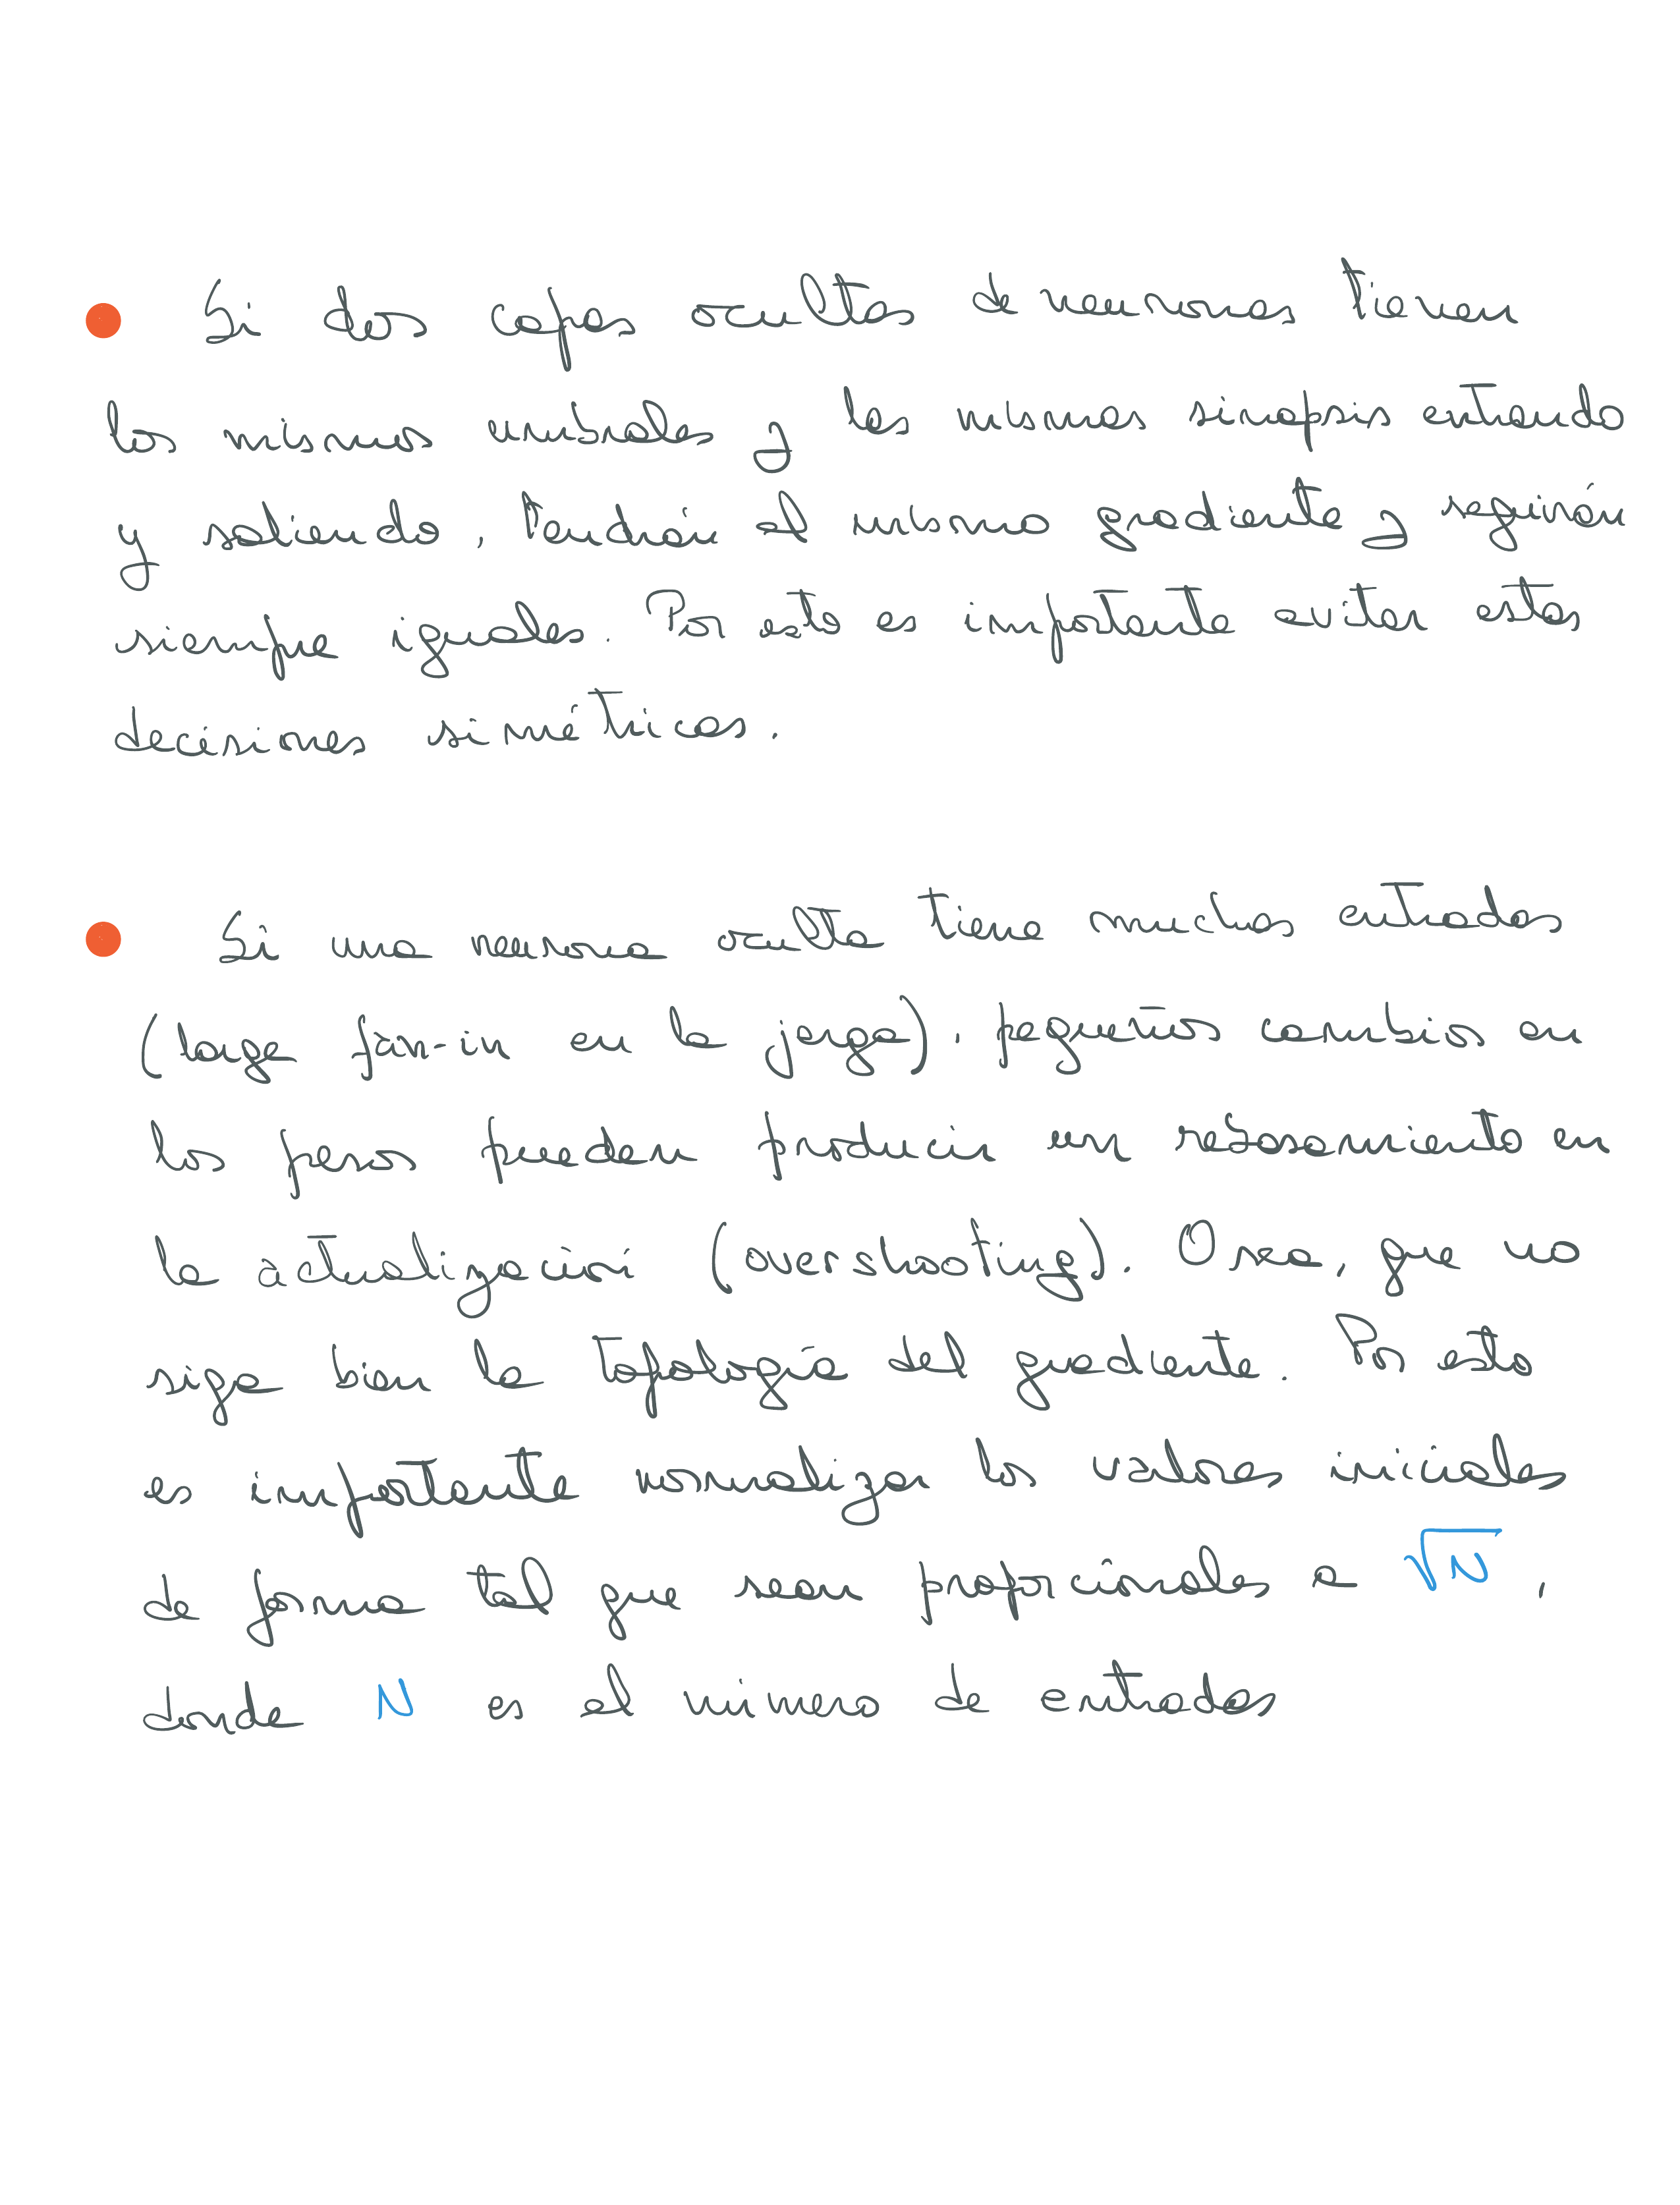 Si dos capas ocultas de neuronas tienen
los mismos umbrales y las mismas sinapsis entrando
y saliendo, tendrán el mismo gradiente y seguirán
siempre iguales. Por esto es importante evitar estas
decisiones simétricas.
Si una neurona oculta tiene muchas entradas
(large fan-in en la jerga), pequeños cambios en
los pesos pueden producir un rebasamiento en
la actualización (overshooting). O sea, que no
siga bien la topología del gradiente. Por esto
es importante normalizar los valores iniciales
de forma tal que sean proporcionales a √N,
donde N es el número de entradas